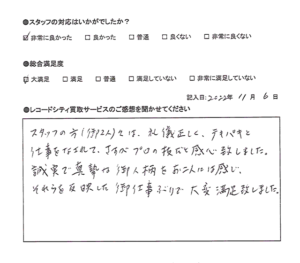 ●スタッフの対応はいかがでしたか?
☑ 非常に良かった □ 良かった □ 普通 □ 良くない □ 非常に良くない
●総合満足度
☑ 大満足 □ 満足 □ 普通 □ 満足していない □ 非常に満足していない
記入日:2022年 11月 6日
●レコードシティ買取サービスのご感想を聞かせてください
スタッフの方(御2人)は、礼儀正しく、テキパキと
仕事をなされて、さすがプロの技だと感心致しました。
誠実で真摯な御人柄をお二人には感じ、
それらを反映した御仕事ぶりで大変満足致しました。